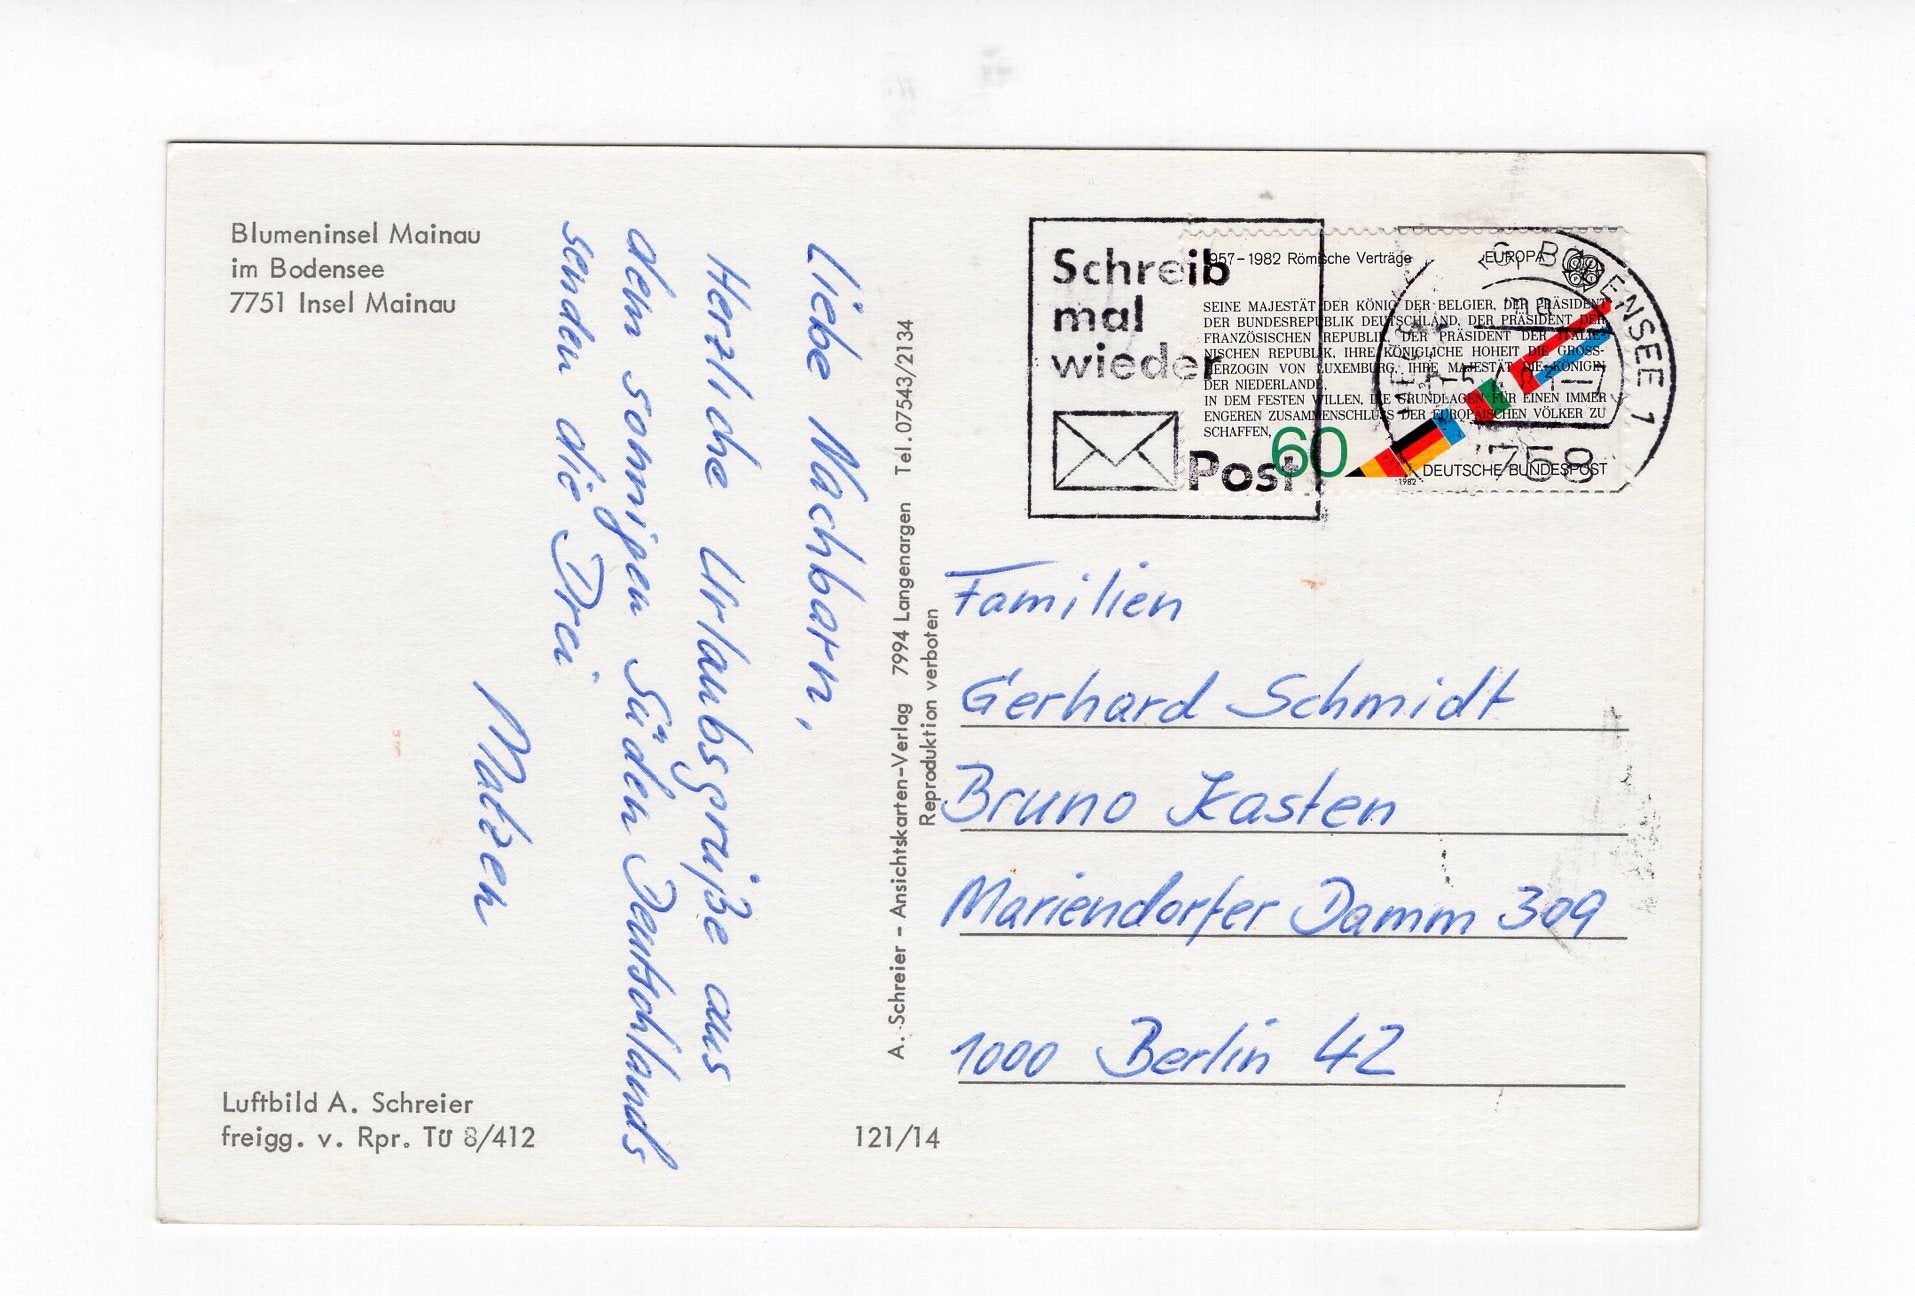 Blumeninsel Mainau
im Bodensee
7751 Insel Mainau
Liebe Nachbarn,
Herzliche Urlaubsgrüße aus
dem sonnigen Süden Deutschlands
senden die Drei
Matzen
Luftbild A. Schreier
freigg. v. Rpr. Tü 8/412
121/14
A. Schreier - Ansichtskarten-Verlag 7994 Langenargen Tel. 07543/2134
Reproduktion verboten
Schreib
mal
wieder
Post
1957-1982 Römische Verträge
EUROPA
SEINE MAJESTÄT DER KÖNIG DER BELGIER, DER PRÄSIDENT
DER BUNDESREPUBLIK DEUTSCHLAND, DER PRÄSIDENT DER
FRANZÖSISCHEN REPUBLIK, DER PRÄSIDENT DER ITALIE-
NISCHEN REPUBLIK, IHRE KÖNIGLICHE HOHEIT DIE GROSS-
HERZOGIN VON LUXEMBURG, IHRE MAJESTÄT DIE KÖNIGIN
DER NIEDERLANDE,
IN DEM FESTEN WILLEN, DIE GRUNDLAGEN FÜR EINEN IMMER
ENGEREN ZUSAMMENSCHLUSS DER EUROPÄISCHEN VÖLKER ZU
SCHAFFEN,
60
DEUTSCHE BUNDESPOST
1982
BODENSEE 1
Familien
Gerhard Schmidt
Bruno Kasten
Mariendorfer Damm 309
1000 Berlin 42